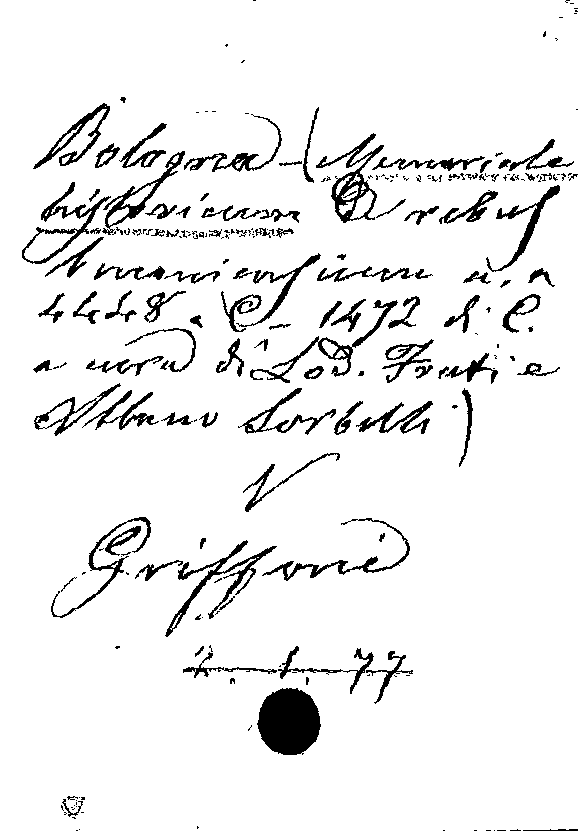 Bologna – (Memoriale
historicum De rebus
Bononiensium a. a
4448 a C – 1472 di C.
a cura di Lod. Frati e
Albano Sorbelli)
V
Griffoni
2. 1. 77